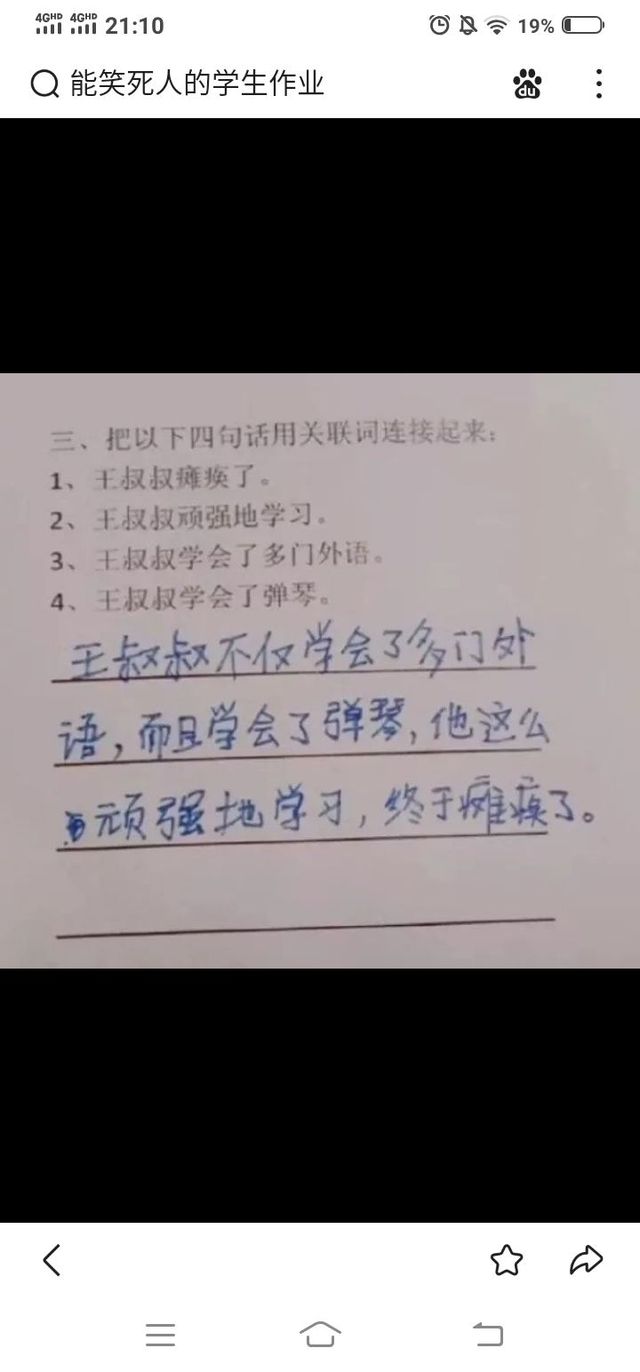 4GHD 4GHD 21:10 19%
能笑死人的学生作业
du
三、把以下四句话用关联词连接起来:
1、王叔叔瘫痪了。
2、王叔叔顽强地学习。
3、王叔叔学会了多门外语。
4、王叔叔学会了弹琴。
王叔叔不仅学会了多门外
语,而且学会了弹琴,他这么
顽强地学习,终于瘫痪了。